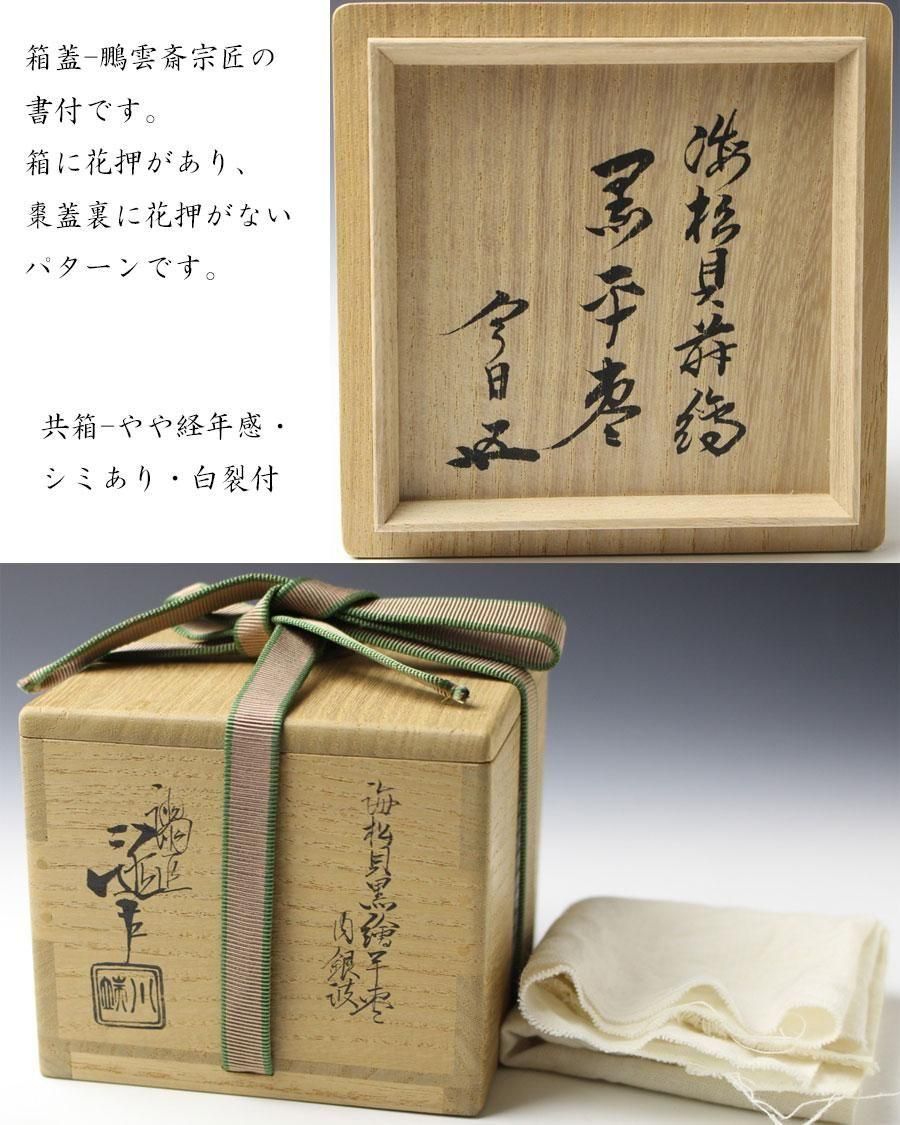 箱蓋-鵬雲斎宗匠の
書付です。
箱に花押があり、
棗蓋裏に花押がない
パターンです。
共箱-やや経年感・
シミあり・白裂付
海松貝蒔繪
黒平棗
今日
海松貝黒繪平棗
内銀